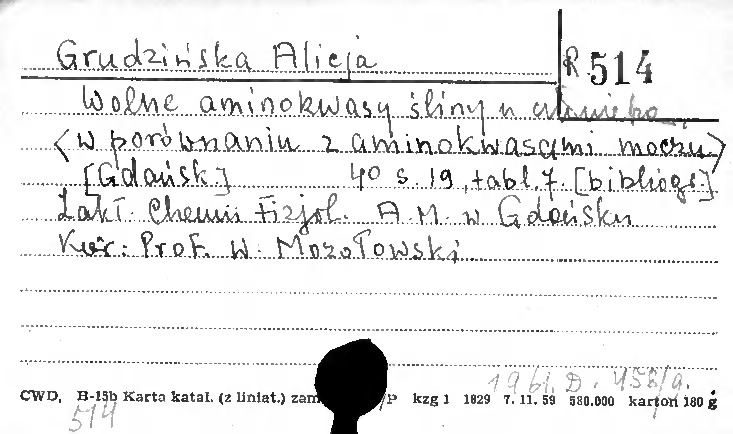 Grudzińska Alicja
R 514
Wolne aminokwasy śliny u człowieka
<w porównaniu z aminokwasami moczu>
[Gdańsk] 40 s. 19, tabl. 7. [bibliogr.]
Zakł. Chemii Fizjol. A.M. w Gdańsku
Kier: Prof. W. Mozołowski
1961. D. 458/g.
CWD, B-15b Karta katal. (z liniat.) zam P kzg 1 1829 7. 11. 59 580.000 karton 180 g
514